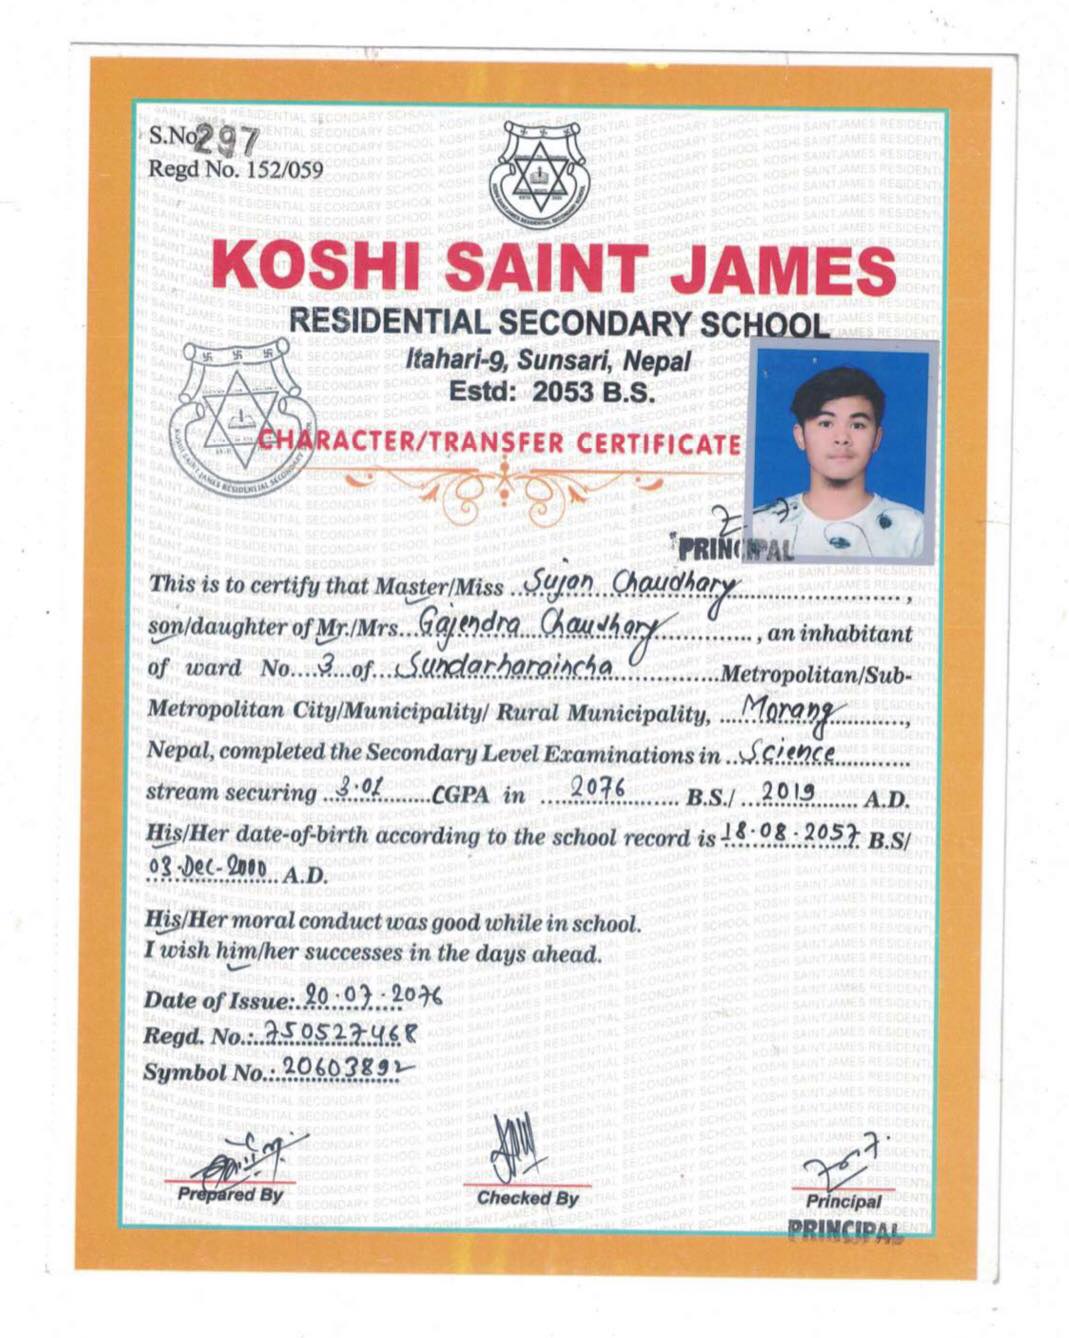 S.No 297
Regd No. 152/059
KOSHI SAINT JAMES
RESIDENTIAL SECONDARY SCHOOL
Itahari-9, Sunsari, Nepal
Estd: 2053 B.S.
CHARACTER/TRANSFER CERTIFICATE
PRINCIPAL
This is to certify that Master/Miss Sujan Chaudhary,
son/daughter of Mr./Mrs. Gajendra Chaudhary, an inhabitant
of ward No. 3 of Sundarharaincha Metropolitan/Sub-
Metropolitan City/Municipality/ Rural Municipality, Morang,
Nepal, completed the Secondary Level Examinations in Science
stream securing 3.01 CGPA in 2076 B.S./ 2019 A.D.
His/Her date-of-birth according to the school record is 18.08.2057 B.S/
03-Dec-2000 A.D.
His/Her moral conduct was good while in school.
I wish him/her successes in the days ahead.
Date of Issue: 20.07.2076
Regd. No.: 750527468
Symbol No.: 20603892
Prepared By
Checked By
Principal
PRINCIPAL